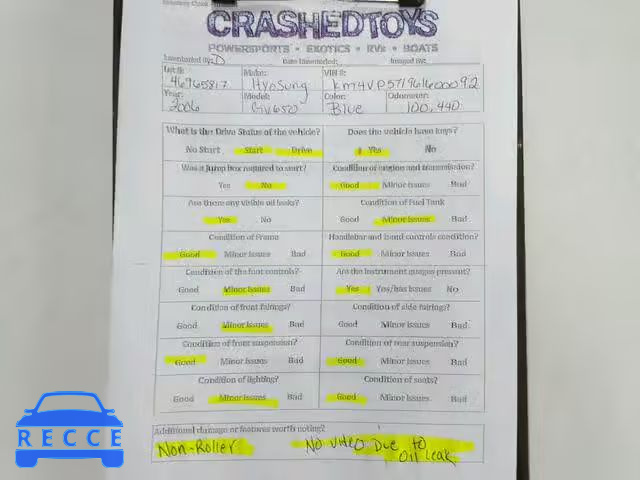 CRASHEDTOYS
POWERSPORTS • EXOTICS • RVs • BOATS
Inventoried By: D Date Inventoried: Imaged By:
Lot #: Make: VIN #:
46965817 Hyosung KM4VP571961600092
Year: Model: Color: Odometer:
2006 GV650 Blue 100,440
What is the Drive Status of the vehicle? Does the vehicle have keys?
No Start Start Drive Yes No
Was a jump box required to start? Condition of engine and transmission?
Yes No Good Minor Issues Bad
Are there any visible oil leaks? Condition of Fuel Tank
Yes No Good Minor Issues Bad
Condition of Frame Handlebar and hand controls condition?
Good Minor Issues Bad Good Minor Issues Bad
Condition of the foot controls? Are the instrument gauges present?
Good Minor Issues Bad Yes Yes/has issues No
Condition of front fairings? Condition of side fairings?
Good Minor Issues Bad Good Minor Issues Bad
Condition of front suspension? Condition of rear suspension?
Good Minor Issues Bad Good Minor Issues Bad
Condition of lighting? Condition of seats?
Good Minor Issues Bad Good Minor Issues Bad
Additional damage or features worth noting?
Non-Roller No video Due to
Oil Leak
RECCE